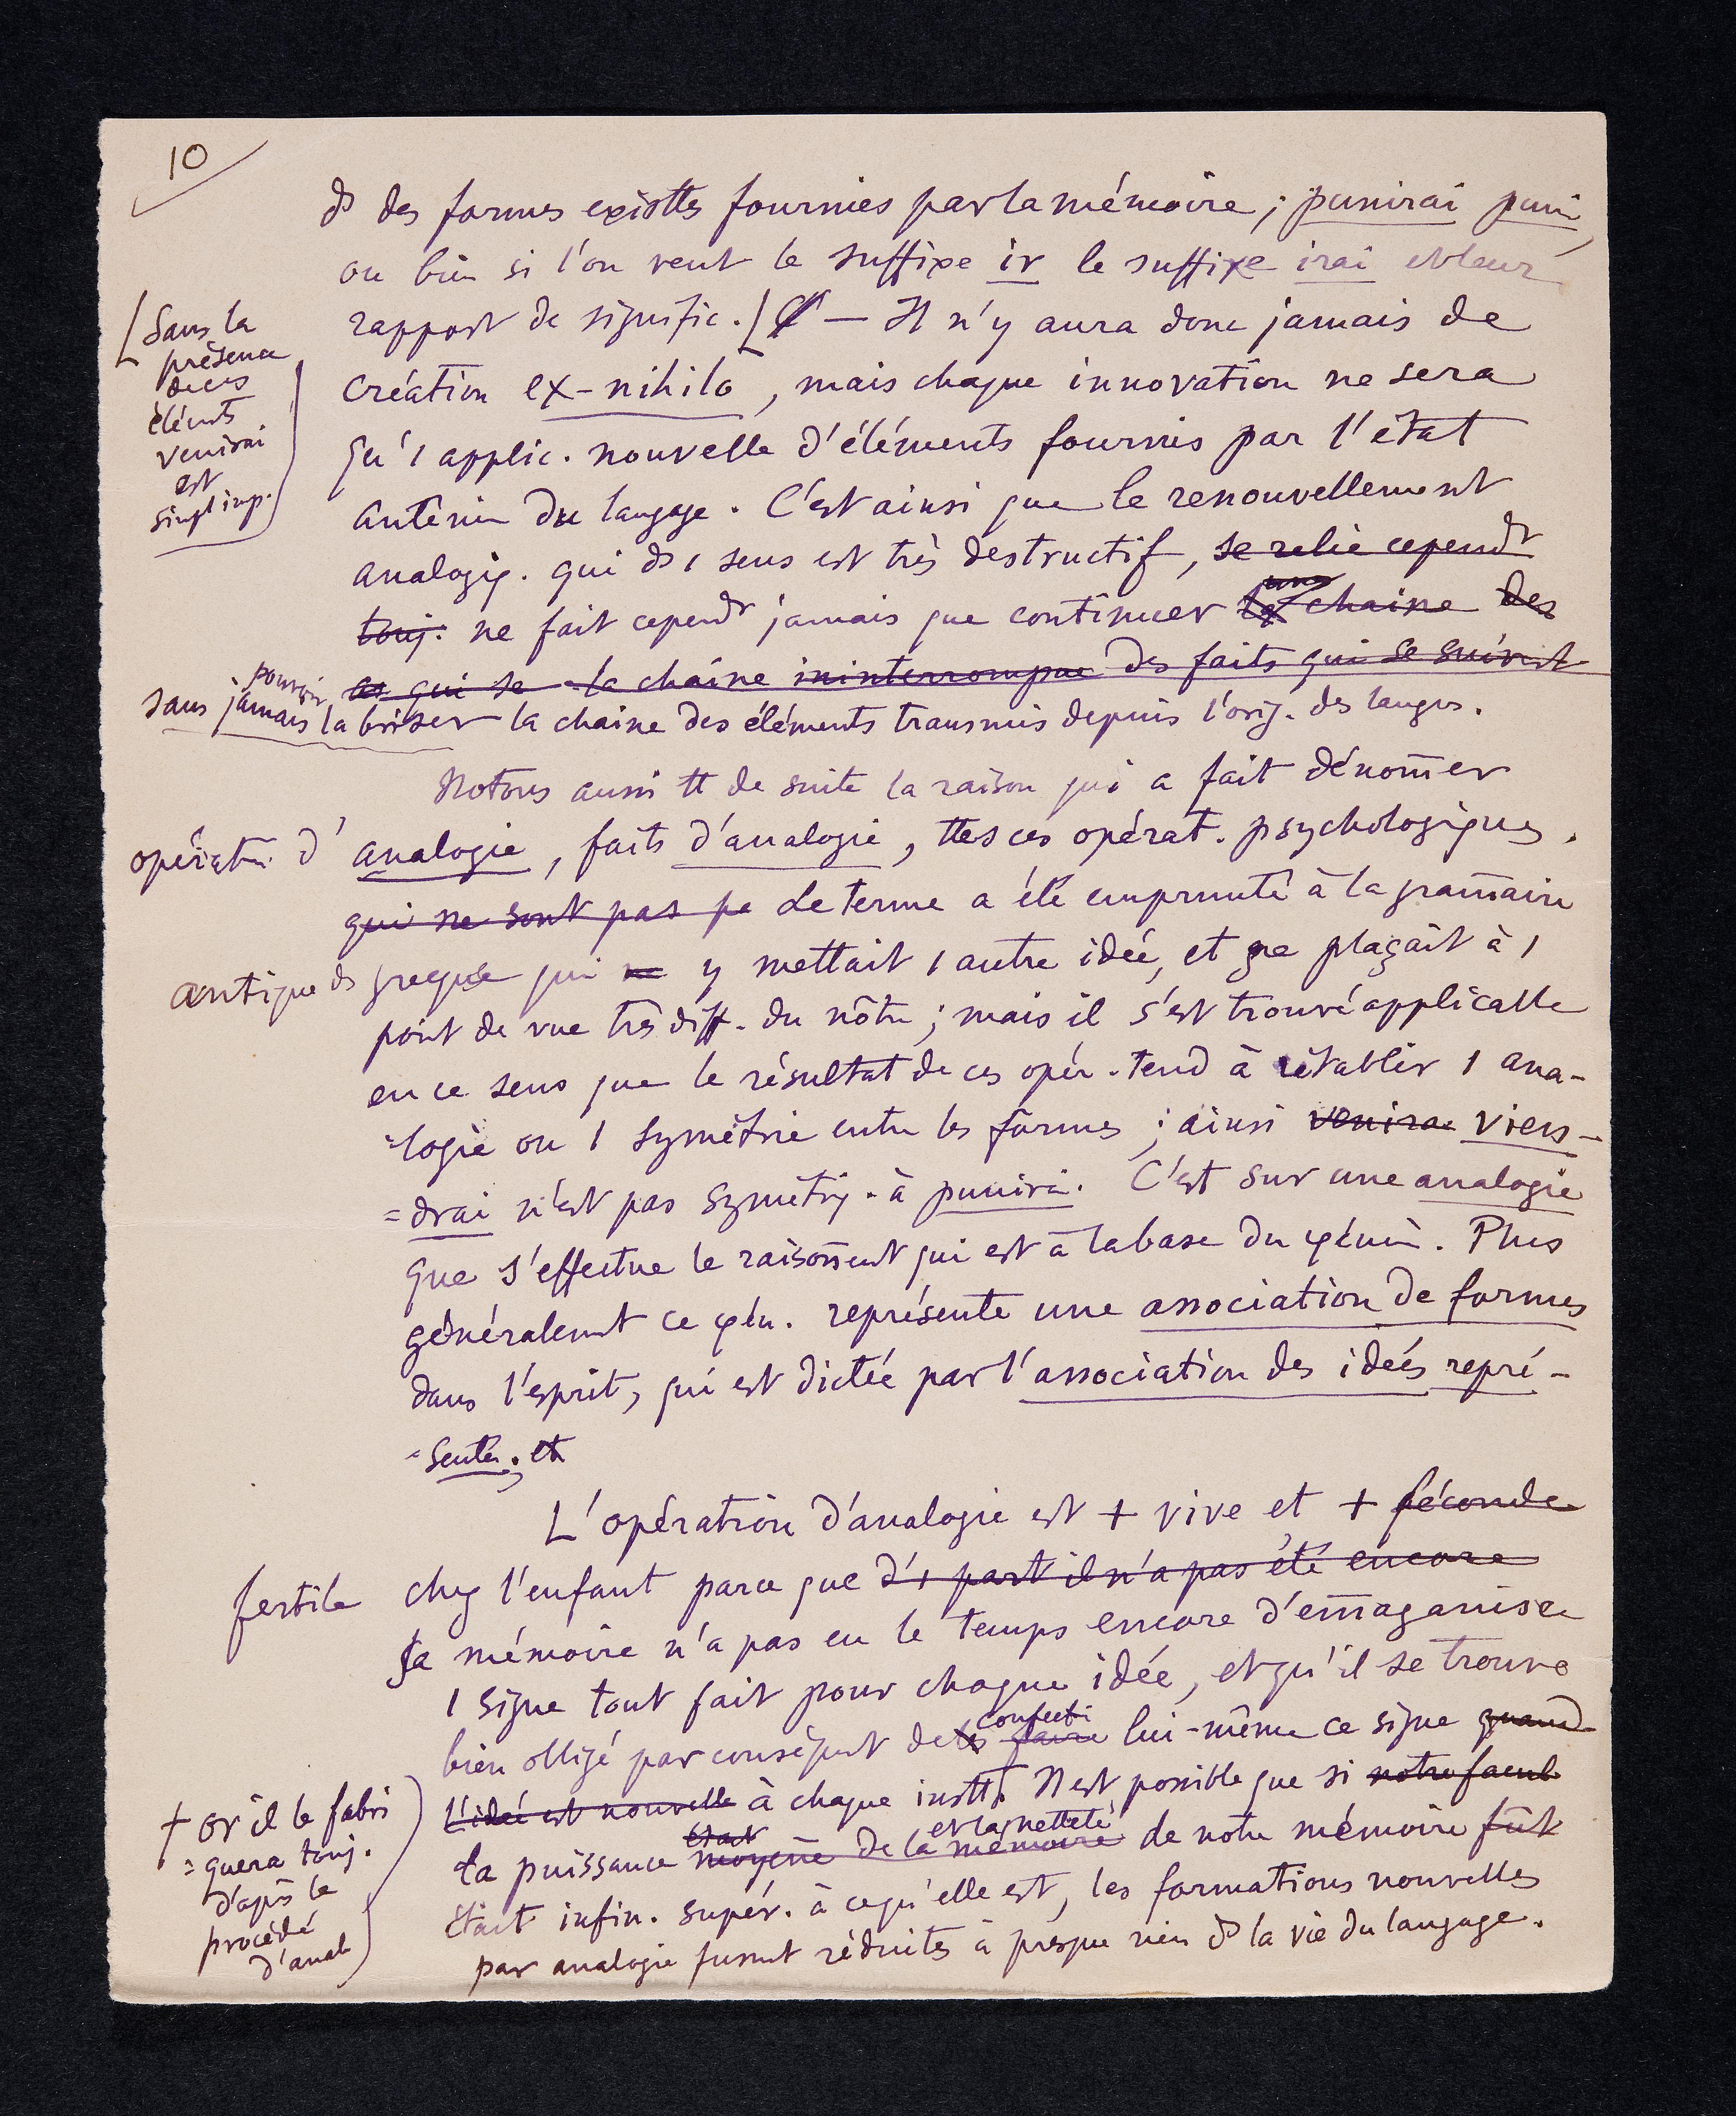 10
ds des formes existtes fournies par la mémoire ; punirai punir,
ou bien si l'on veut le suffixe ir le suffixe irai et leur
rapport de signific. [ — Il n'y aura donc jamais de
[ Sans la
présence
de ces
élémts
venirai
est
simplt imp.
création ex-nihilo, mais chaque innovation ne sera
qu'1 applic. nouvelle d'éléments fournis par l'état
antérieur du langage. C'est ainsi que le renouvellement
analogiq. qui ds 1 sens est très destructif, se relie cependt
touj. ne fait cependt jamais que continuer la une chaine des
as qui se la chaîne ininterrompue des faits qui se suivent
sans jamais pouvoir la briser la chaine des éléments transmis depuis l'orig. des langues.
Notons aussi tt de suite la raison qui a fait dénom̄er
opération d'analogie, faits d'analogie, ttes ces opérat. psychologiques.
qui ne sont pas pa Le terme a été emprunté à la gram̄aire
antique ds grecque qui ne y mettait 1 autre idée, et se plaçait à 1
point de vue très diff. du nôtre ; mais il s'est trouvé applicable
en ce sens que le résultat de ces opér. tend à rétablir 1 ana-
=logie ou 1 symétrie entre les formes ; ainsi venirai viens-
=drai n'est pas symétriq. à punirai. C'est sur une analogie
que s'effectue le raison̄emt qui est à la base du φénom. Plus
généralemt ce φén. représente une association de formes
dans l'esprit, qui est dictée par l'association des idées repré-
-sentées. et
L'opération d'analogie est + vive et + féconde
fertile chez l'enfant parce que d'1 part il n'a pas été encore
sa mémoire n'a pas eu le temps encore d'em̄aganiser
1 signe tout fait pour chaque idée, et qu'il se trouve
bien obligé par conséquent de faire confect. lui-même ce signe quand
l'idée est nouvelle à chaque instt. Il est possible que si notre facult
+ or il le fabri
=quera touj.
d'après le
procédé
d'anal.
la puissance moyenne état de la mémoire et la netteté de notre mémoire fût
était infin. supér. à ce qu'elle est, les formations nouvelles
par analogie fussent réduites à presque rien ds la vie du langage.